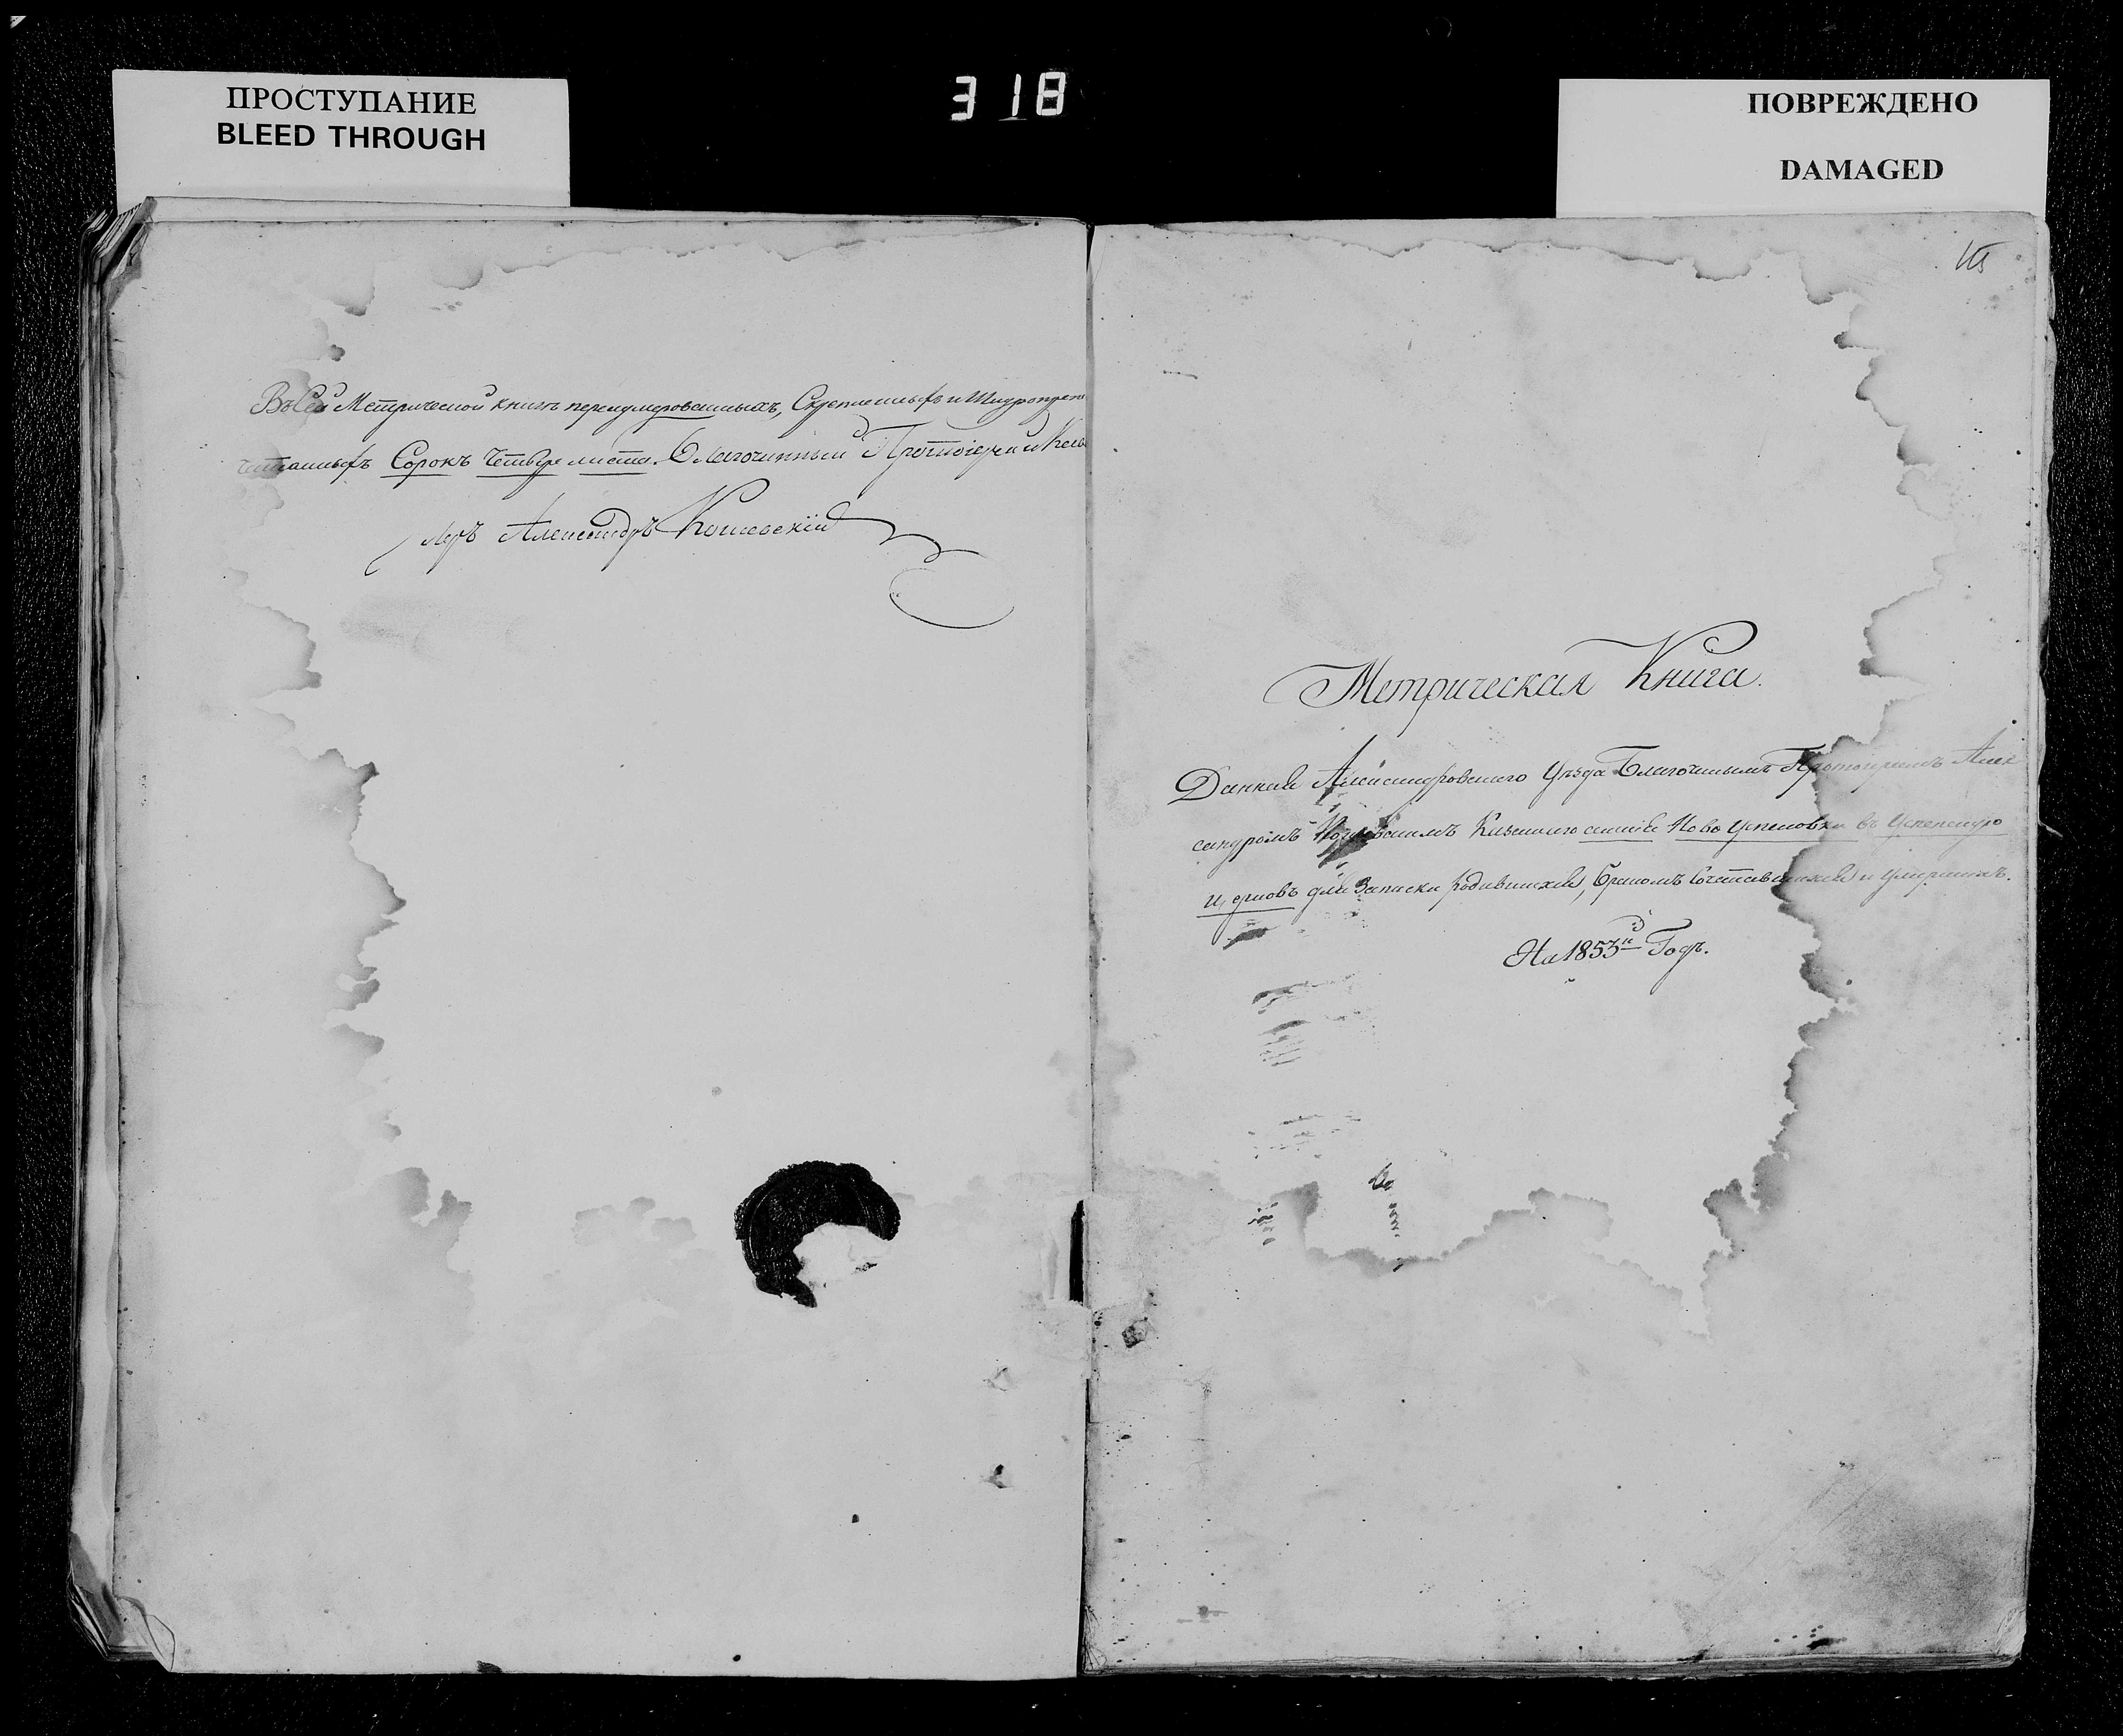 ПРОСТУПАНИЕ
BLEED THROUGH
318
ПОВРЕЖДЕНО
DAMAGED
Въ Сей Метрической книгѣ перенумерованныхъ, Скрепленныхъ и Шнуропрепи
читанныхъ Сорокъ Четыре листа. Благочинный Протоіерей и Кава
леръ Александръ Кошевскій
Метрическая Книга.
Данная Александровскаго Уѣзда Благочиннымъ Протоиереемъ Алек
сандромъ Казеннаго селенія Ново Успеновки въ Успенскую
церковь для Записки Родившихся, Бракомъ Сочетавшихся и Умершихъ.
На 1853й Годъ.